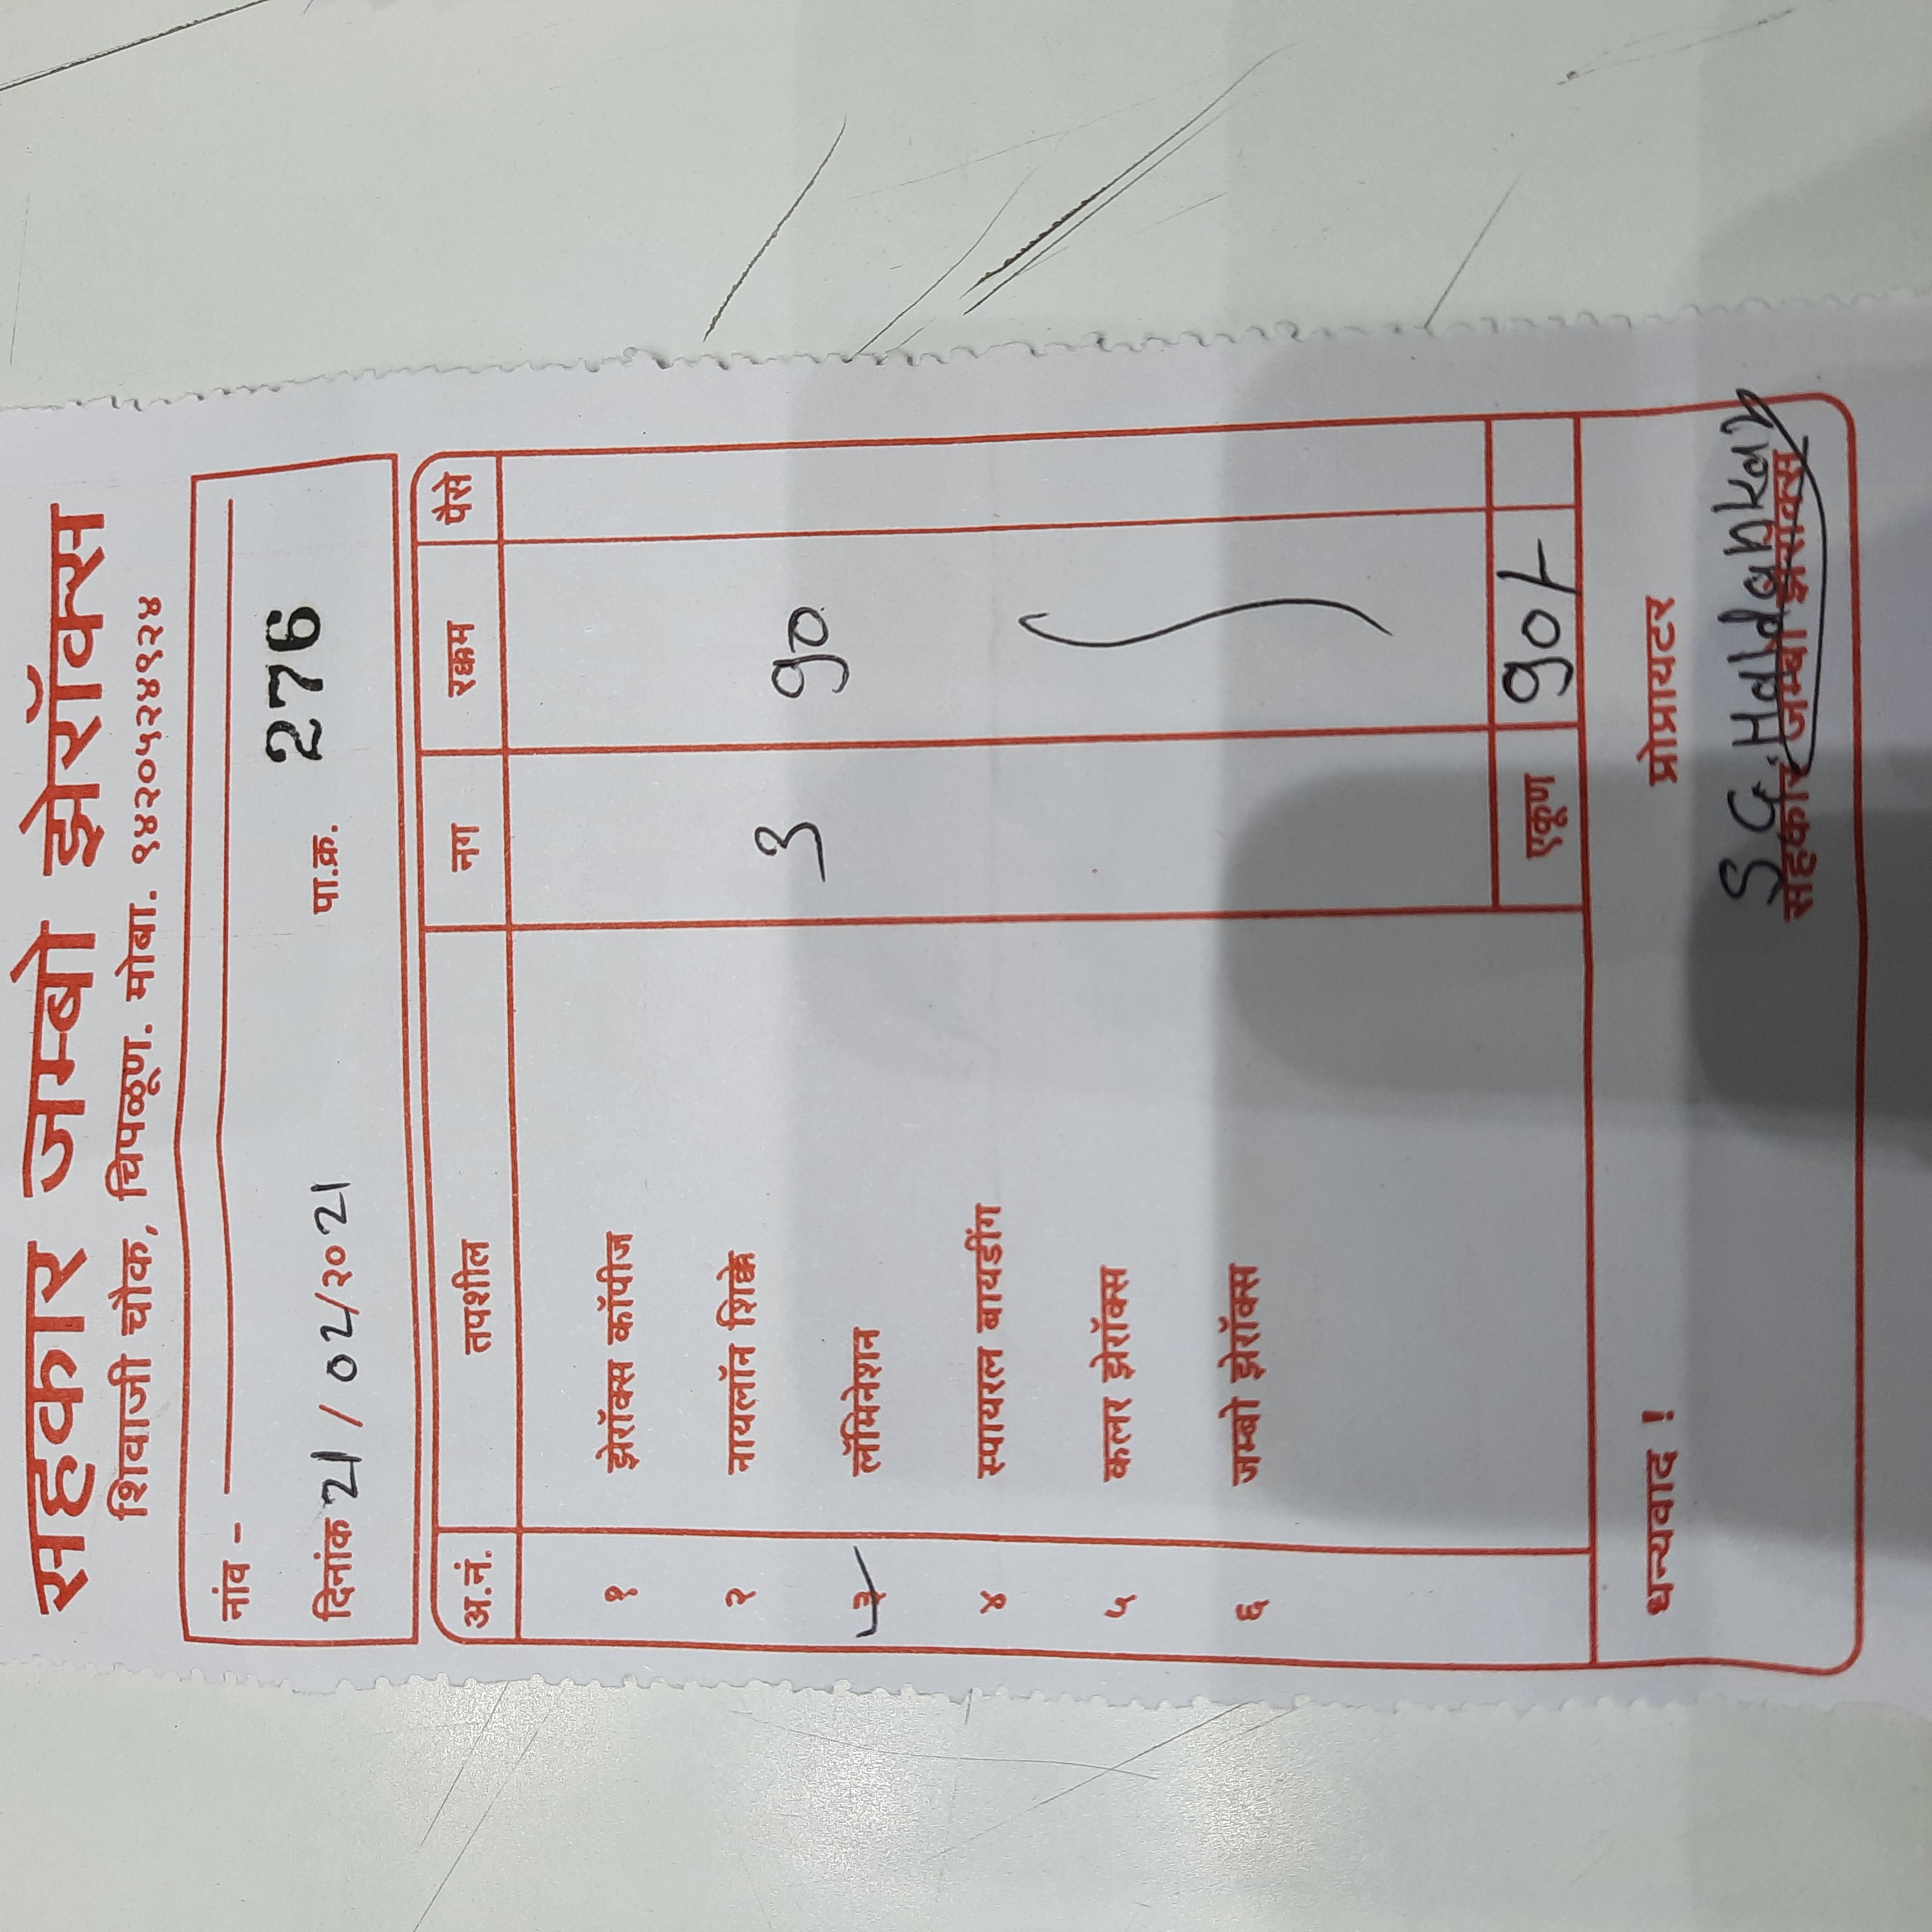 सहकार जम्बो झेरॉक्स
शिवाजी चौक, चिपळूण. मोबा. ९४२०५२४९२४
नांव -
दिनांक 21 / 02/२० 21 पा.क्र. 276
अ.नं. तपशील नग रक्कम पैसे
१ झेरॉक्स कॉपीज
२ नायलॉन शिक्के
3 90
३ लॅमिनेशन
४ स्पायरल बायडींग
५ कलर झेरॉक्स
६ जम्बो झेरॉक्स
एकूण 90/-
धन्यवाद ! प्रोप्रायटर
S.G.Haldankar
सहकार जम्बो झेरॉक्स